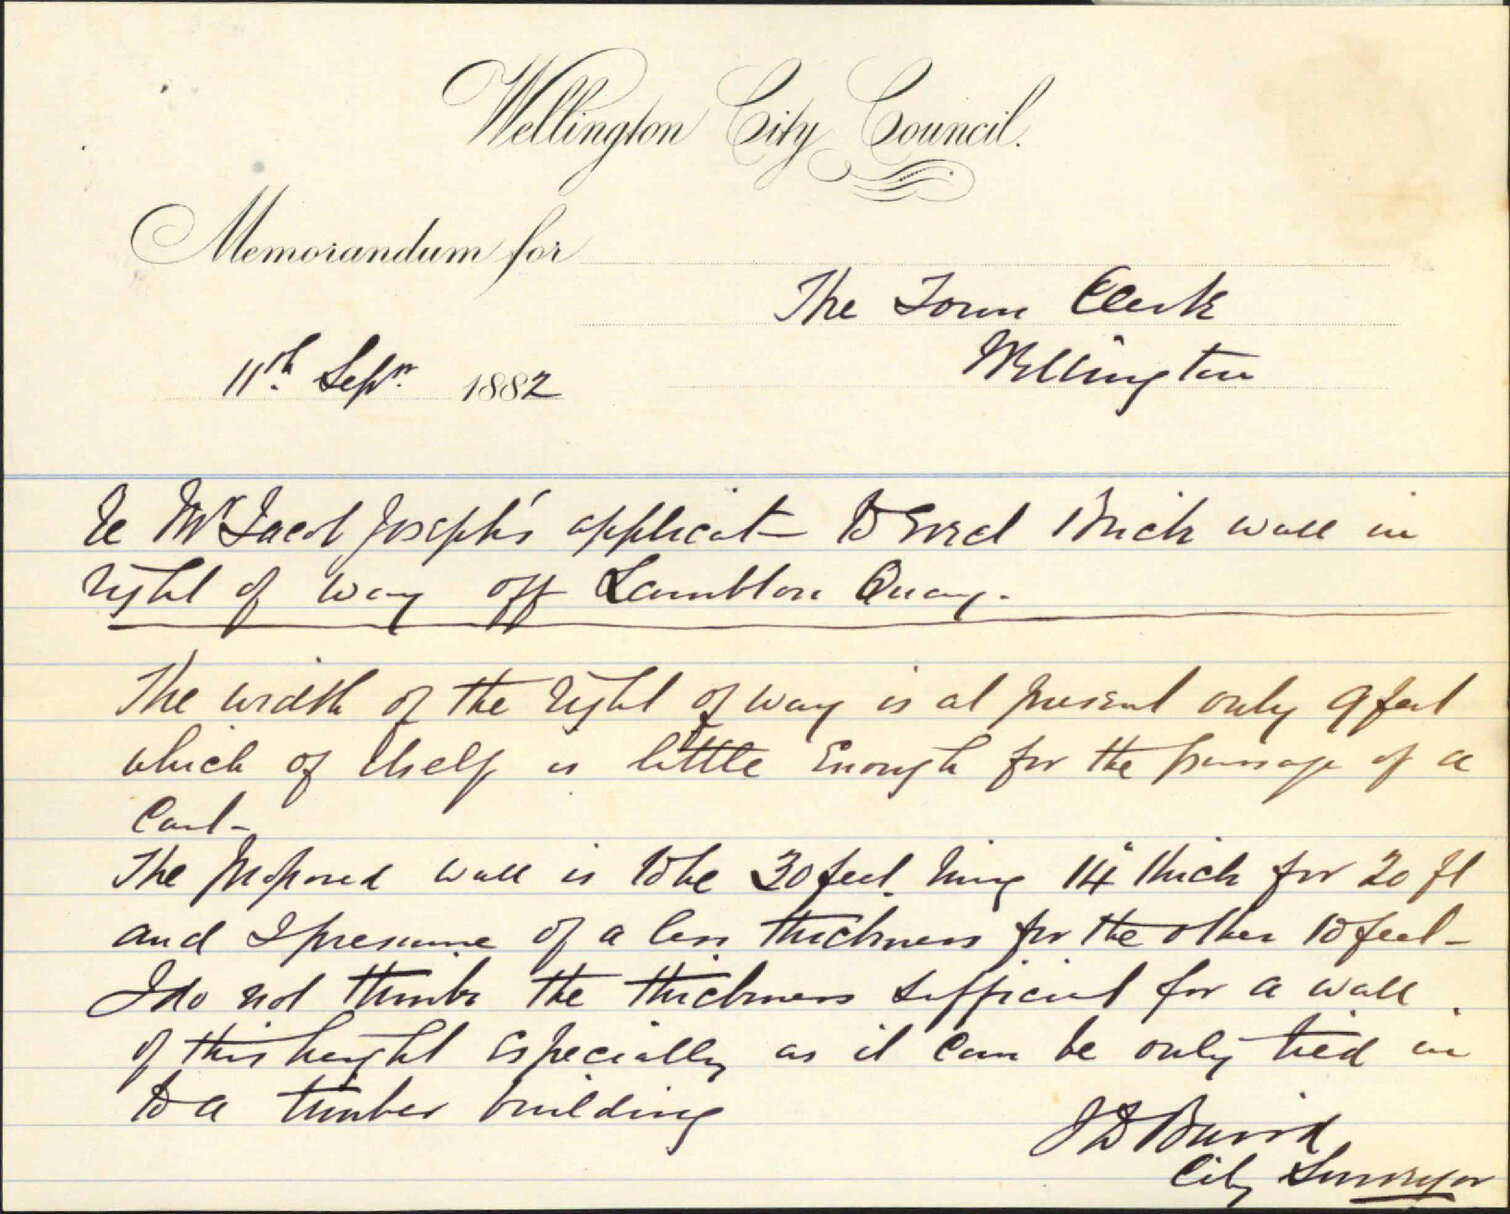 Wellington City Council.
Memorandum for
The Town Clerk
Wellington
11th Sepr. 1882
Re Mr Jacob Joseph's applicat- to Erect Brick wall in
right of way off Lambton Quay.
The width of the right of way is at present only 9 feet
which of itself is little Enough for the passage of a
Cart-
The proposed wall is to be 30 feet. being 14" thick for 20 ft
and I presume of a less thickness for the other 10 feet-
I do not think the thickness sufficient for a wall
of this height Especially as it can be only tied in
to a timber building
J D Baird
City Surveyor